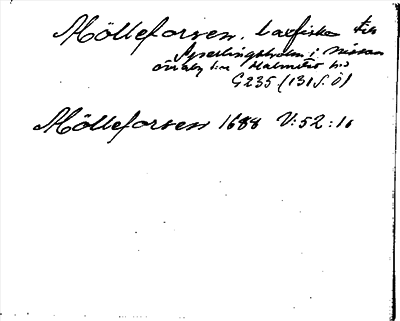 Mölleforsen, laxfiske till
Sperlingsholm i Nissan
Övraby sn Halmstad hd
G235 (131 S.Ö)
Mölleforsen 1688 V:52:16